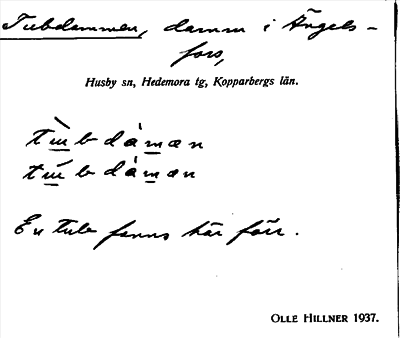 Tubdammen, damm i Ängels-
fors,
Husby sn, Hedemora tg, Kopparbergs län.
En tub fanns här förr.
OLLE HILLNER 1937.